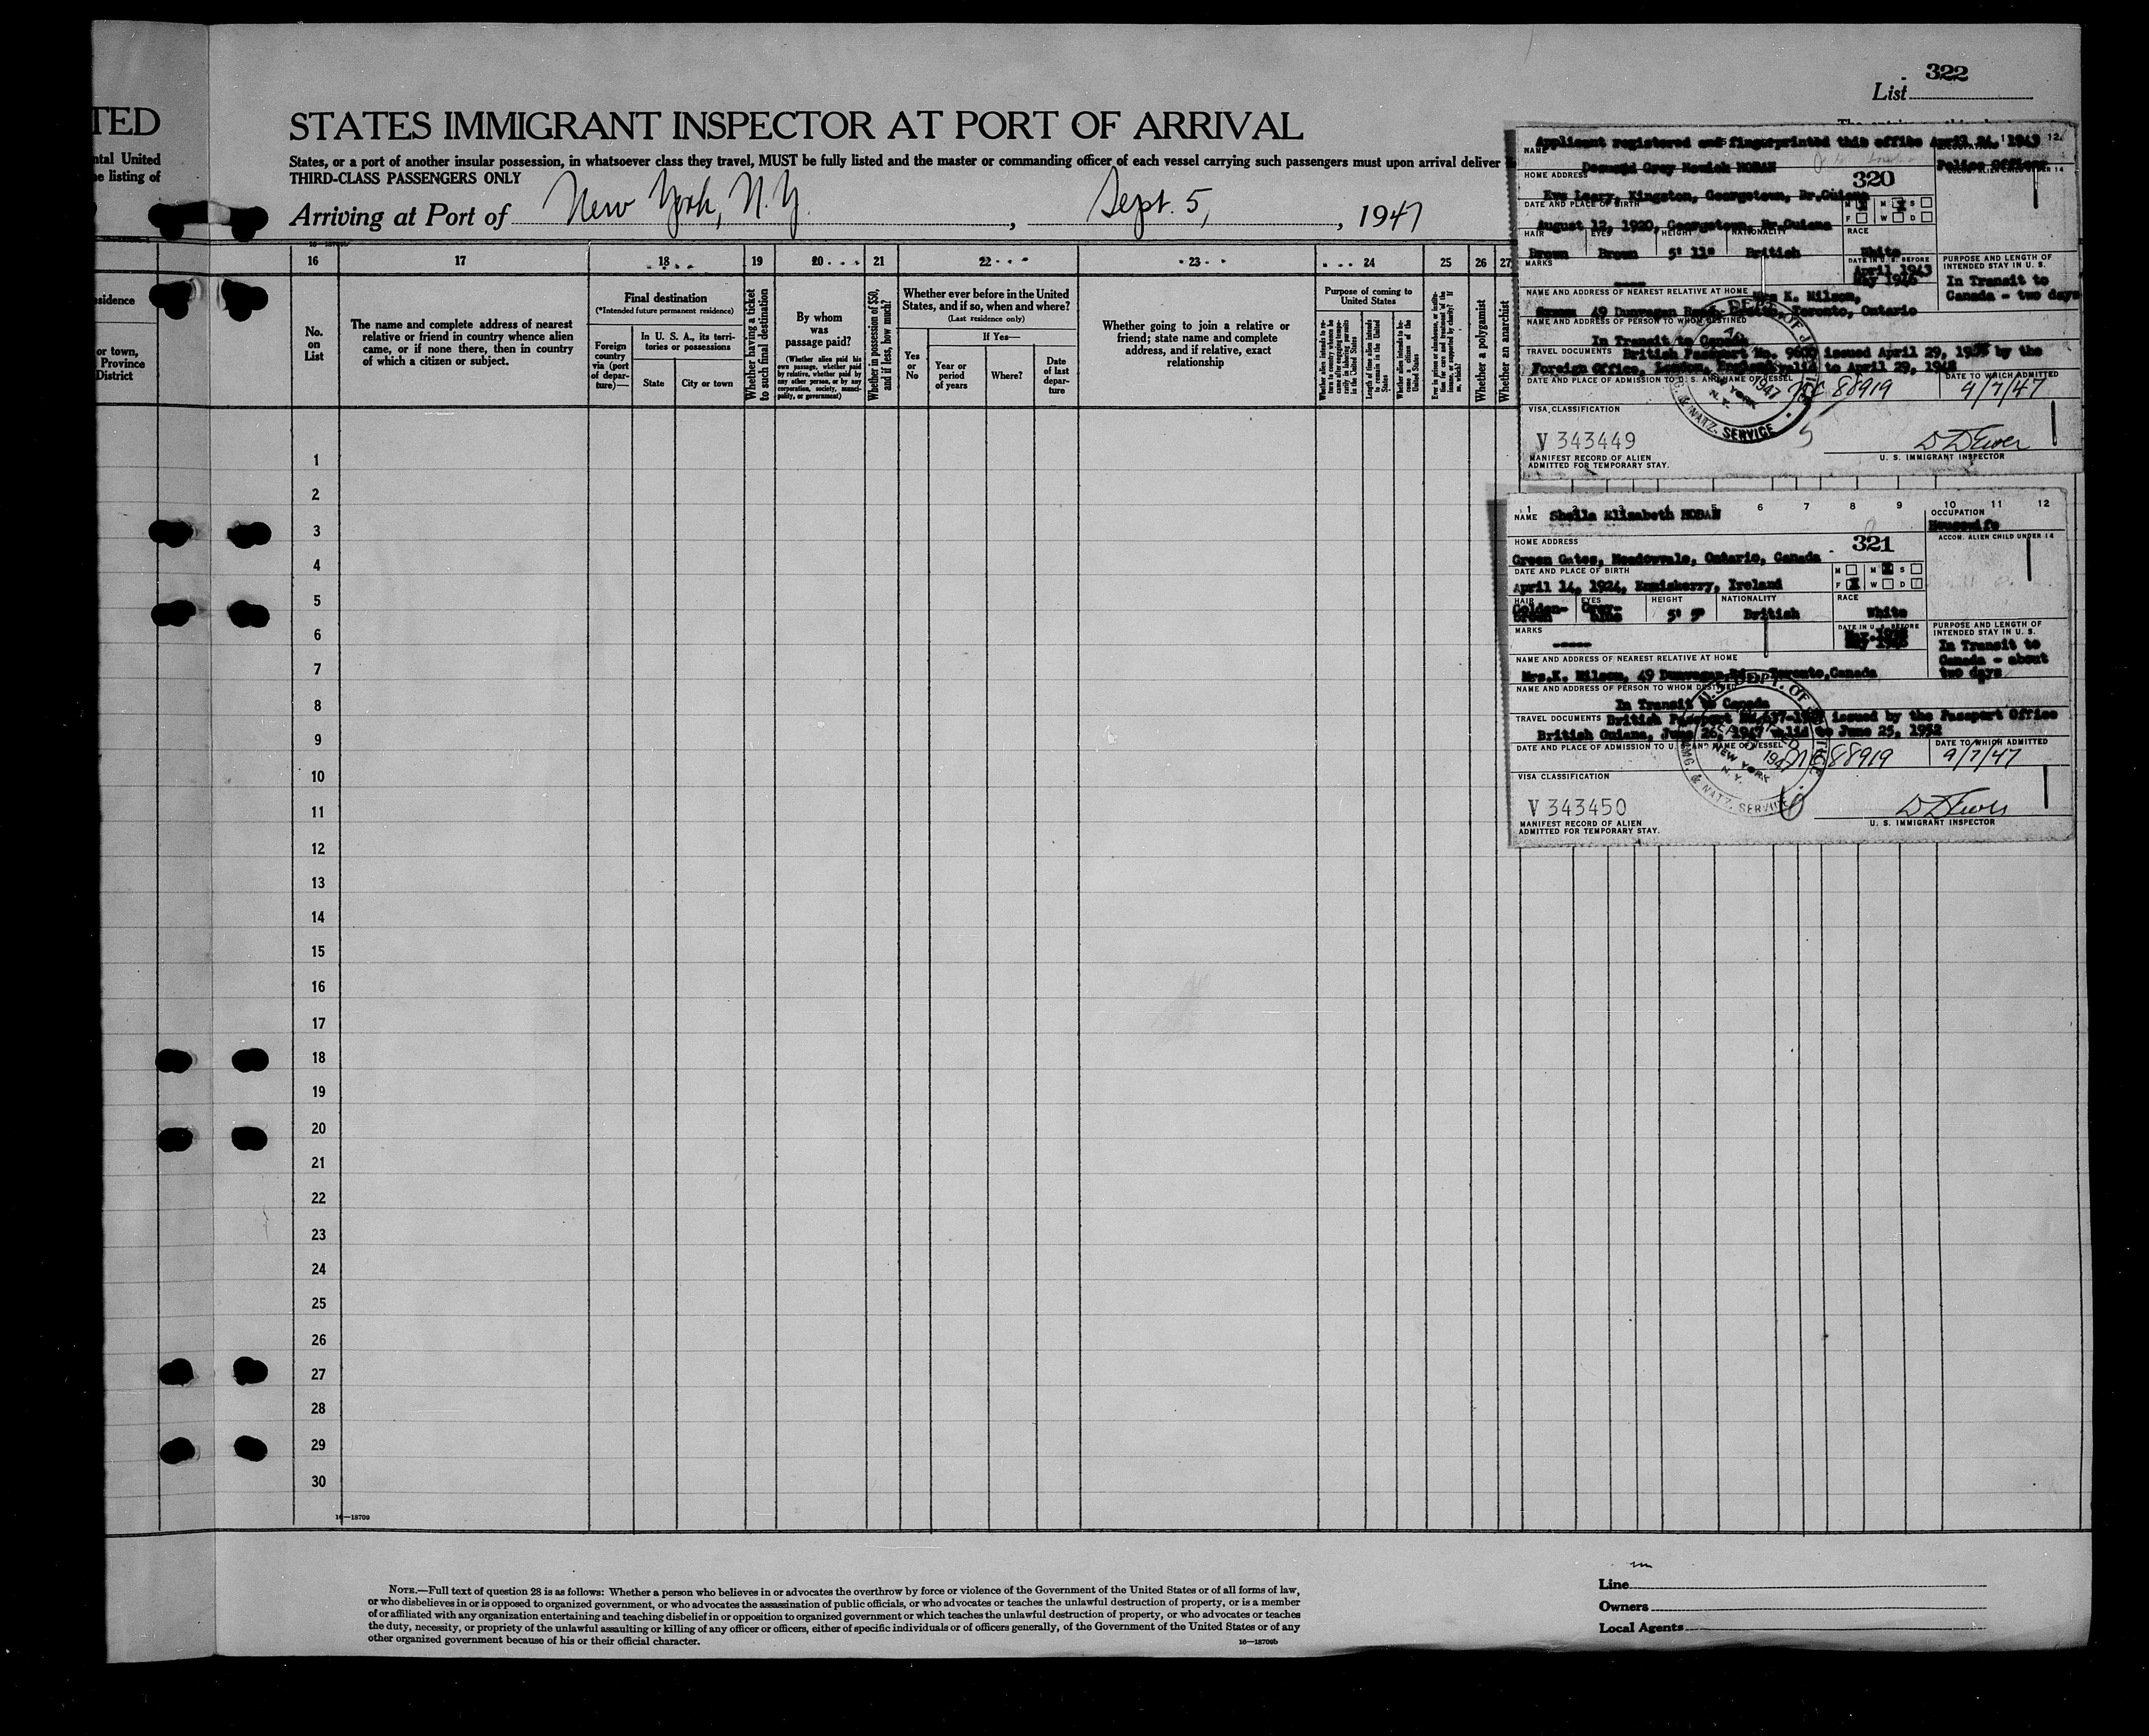 322
List
TED
STATES IMMIGRANT INSPECTOR AT PORT OF ARRIVAL
ntal United
e listing of
States, or a port of another insular possession, in whatsoever class they travel, MUST be fully listed and the master or commanding officer of each vessel carrying such passengers must upon arrival deliver
THIRD-CLASS PASSENGERS ONLY
Arriving at Port of New York, N.Y. , Sept. 5, , 1947
16 17 18 19 20 21 22 23 24 25 26 27
sidence
or town,
Province
District
No.
on
List
The name and complete address of nearest
relative or friend in country whence alien
came, or if none there, then in country
of which a citizen or subject.
Final destination
(*Intended future permanent residence)
Foreign
country
via (port
of depar-
ture)—
In U. S. A., its terri-
tories or possessions
State
City or town
Whether having a ticket
to such final destination
By whom
was
passage paid?
(Whether alien paid his
own passage, whether paid
by relative, whether paid by
any other person, or by any
corporation, society, munici-
pality, or government)
Whether in possession of $50,
and if less, how much?
Whether ever before in the United
States, and if so, when and where?
(Last residence only)
Yes
or
No
If Yes—
Year or
period
of years
Where?
Date
of last
depar-
ture
Whether going to join a relative or
friend; state name and complete
address, and if relative, exact
relationship
Purpose of coming to
United States
Length of time alien intends
to remain in the United
States
Whether alien intends to be-
come a citizen of the
United States
Whether a polygamist
Whether an anarchist
1
2
3
4
5
6
7
8
9
10
11
12
13
14
15
16
17
18
19
20
21
22
23
24
25
26
27
28
29
30
16—18709
Applicant registered and fingerprinted this office April 24, 1943
NAME
Desmond Grey Howick HOBAN
Police Officer
HOME ADDRESS
320
Eve Leary, Kingston, Georgetown, Br.Guiana
DATE AND PLACE OF BIRTH
M X M X S
F W D
August 12, 1920, Georgetown, Br.Guiana
HAIR EYES HEIGHT NATIONALITY RACE
Brown Brown 5' 11" British White
MARKS
DATE IN U. S. BEFORE
April 1943
May 1946
PURPOSE AND LENGTH OF
INTENDED STAY IN U. S.
In Transit to
Canada - two days
NAME AND ADDRESS OF NEAREST RELATIVE AT HOME
Mrs K. Wilson,
49 Dunvegan Road, Toronto, Ontario
NAME AND ADDRESS OF PERSON TO WHOM DESTINED
In Transit to Canada
TRAVEL DOCUMENTS British Passport No. issued April 29, by the
Foreign Office, London, England valid to April 29, 1948
DATE AND PLACE OF ADMISSION TO U. S. AND NAME OF VESSEL
DATE TO WHICH ADMITTED
NC 88919
9/7/47
VISA CLASSIFICATION
V 343449
MANIFEST RECORD OF ALIEN
ADMITTED FOR TEMPORARY STAY.
U. S. IMMIGRANT INSPECTOR
1 2 3 4 5 6 7 8 9 10 11 12
NAME Sheila Elizabeth HOBAN
OCCUPATION
Housewife
HOME ADDRESS
321
ACCOM. ALIEN CHILD UNDER 14
Green Gates, Meadowvale, Ontario, Canada
DATE AND PLACE OF BIRTH
M M X S
F X W D
April 14, 1924, Enniskerry, Ireland
HAIR EYES HEIGHT NATIONALITY RACE
Golden-
brown
Grey-
blue
British White
MARKS
DATE IN U. S. BEFORE
PURPOSE AND LENGTH OF
INTENDED STAY IN U. S.
In Transit to
Canada - about
two days
NAME AND ADDRESS OF NEAREST RELATIVE AT HOME
Mrs.K. Wilson, 49 Dunvegan Rd., Toronto,Canada
NAME AND ADDRESS OF PERSON TO WHOM DESTINED
In Transit to Canada
TRAVEL DOCUMENTS British Passport issued by the Passport Office
British Guiana, June 26, 1947 valid to June 25, 1952
DATE AND PLACE OF ADMISSION TO U. S. AND NAME OF VESSEL
DATE TO WHICH ADMITTED
NC 88919
9/7/47
NEW YORK
N. Y.
IMMIG. & NATZ. SERVICE
VISA CLASSIFICATION
V 343450
MANIFEST RECORD OF ALIEN
ADMITTED FOR TEMPORARY STAY.
U. S. IMMIGRANT INSPECTOR
NOTE.—Full text of question 28 is as follows: Whether a person who believes in or advocates the overthrow by force or violence of the Government of the United States or of all forms of law,
or who disbelieves in or is opposed to organized government, or who advocates the assassination of public officials, or who advocates or teaches the unlawful destruction of property, or is a member
of or affiliated with any organization entertaining and teaching disbelief in or opposition to organized government or which teaches the unlawful destruction of property, or who advocates or teaches
the duty, necessity, or propriety of the unlawful assaulting or killing of any officer or officers, either of specific individuals or of officers generally, of the Government of the United States or of any
other organized government because of his or their official character.
16—18709b
Line
Owners
Local Agents